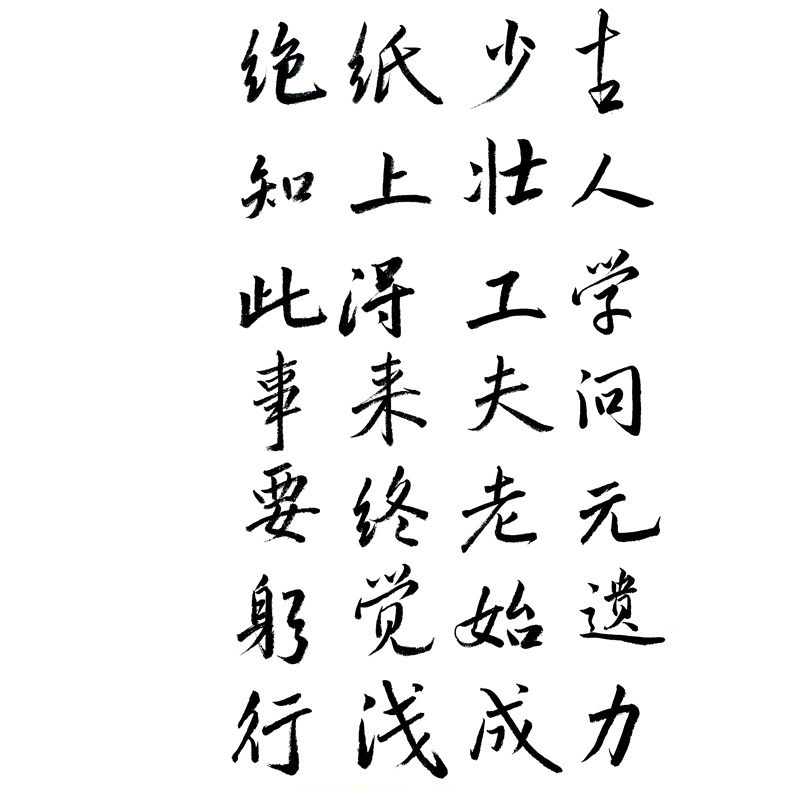 古人学问元遗力
少壮工夫老始成
纸上得来终觉浅
绝知此事要躬行